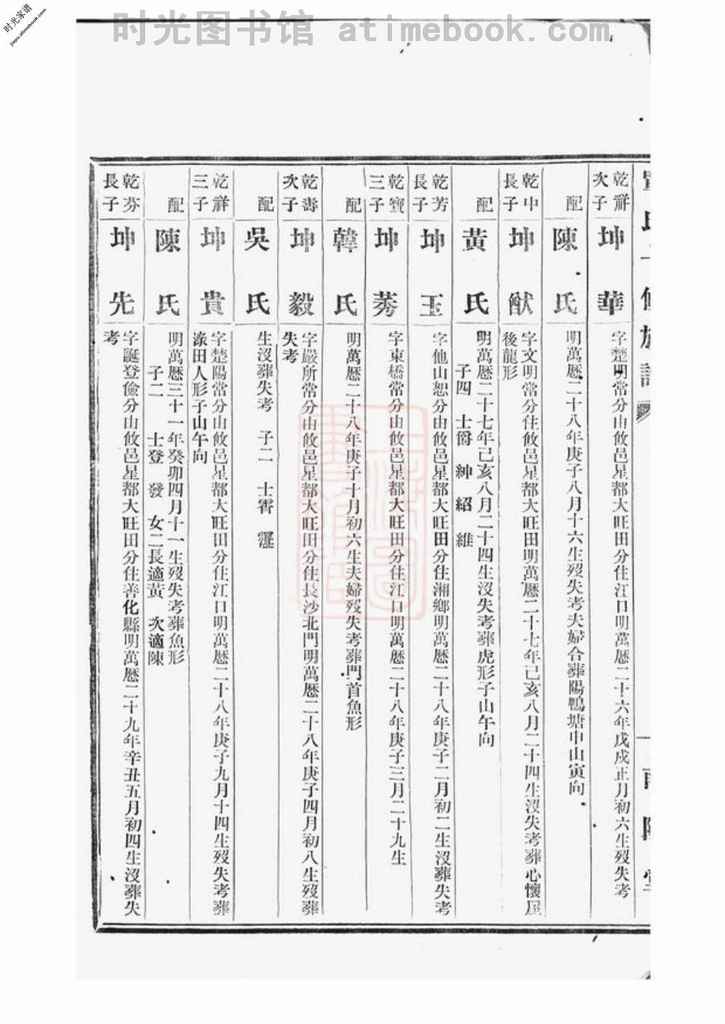 时光图书馆 atimebook.com
时光家谱
乾祥次子
坤華
字楚明常分山攸邑星都大旺田分住江口明萬曆二十六年戊戌正月初六生歿失考
配
陳氏
明萬曆二十八年庚子八月十六生歿失考夫婦合葬陽鴨塘申山寅向
乾中長子
坤猷
字文明常分住攸邑星都大旺田明萬曆二十七年己亥八月二十四生沒失考葬心懷屋
後龍形
配
黃氏
明萬曆二十七年己亥八月二十四生沒失考葬虎形子山午向
子四 士爵 紳 紹 維
乾芳長子
坤玉
字他山恕分山攸邑星都大旺田分住湘鄉明萬曆二十八年庚子二月初二生沒葬失考
乾寶三子
坤莠
字東橋常分山攸邑星都大旺田分住江口明萬曆二十八年庚子三月二十九生
配
韓氏
明萬曆二十八年庚子十月初六生夫婦歿失考葬門首魚形
乾壽次子
坤毅
字嚴所常分山攸邑星都大旺田分住長沙北門明萬曆二十八年庚子四月初八生歿葬
失考
配
吳氏
生沒葬失考 子二 士霄 霆
乾祥三子
坤貴
字楚陽常分山攸邑星都大旺田分住江口明萬曆二十八年庚子九月十四生歿失考葬
涤田人形子山午向
配
陳氏
明萬曆三十一年癸卯四月十一生歿失考葬魚形
子二 士登 發 女二長適黃 次適陳
乾芬長子
坤先
字誕登儉分山攸邑星都大旺田分住善化縣明萬曆二十九年辛丑五月初四生沒葬失
考